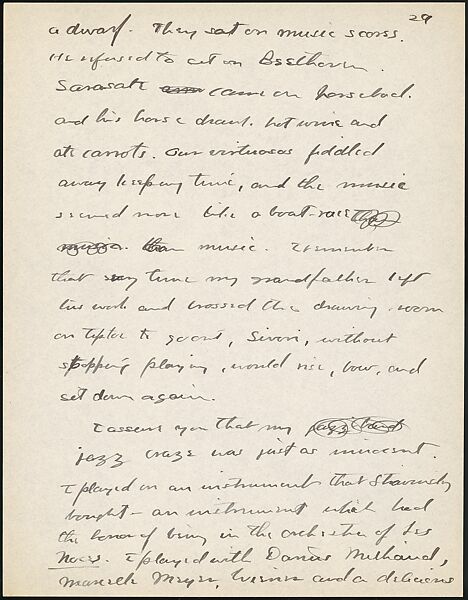 29
a dwarf. They sat on music scores.
He refused to sit on Beethoven.
Sarasate came on horseback.
and his horse drank hot wine and
ate carrots. Our virtuosos fiddled
away keeping time, and the music
seemed more like a boat-race
than music. I remember
that every time my grandfather left
his work and crossed the drawing-room
on tiptoe to go out, Sivori, without
stopping playing, would rise, bow, and
sit down again.
I assure you that my jazz band
jazz craze was just as innocent.
I played on an instrument that Stravinsky
bought – an instrument which had
the honor of being in the orchestra of Les
Noces. I played with Darius Milhaud,
Marcelle Meyer, Wiener and a delicious